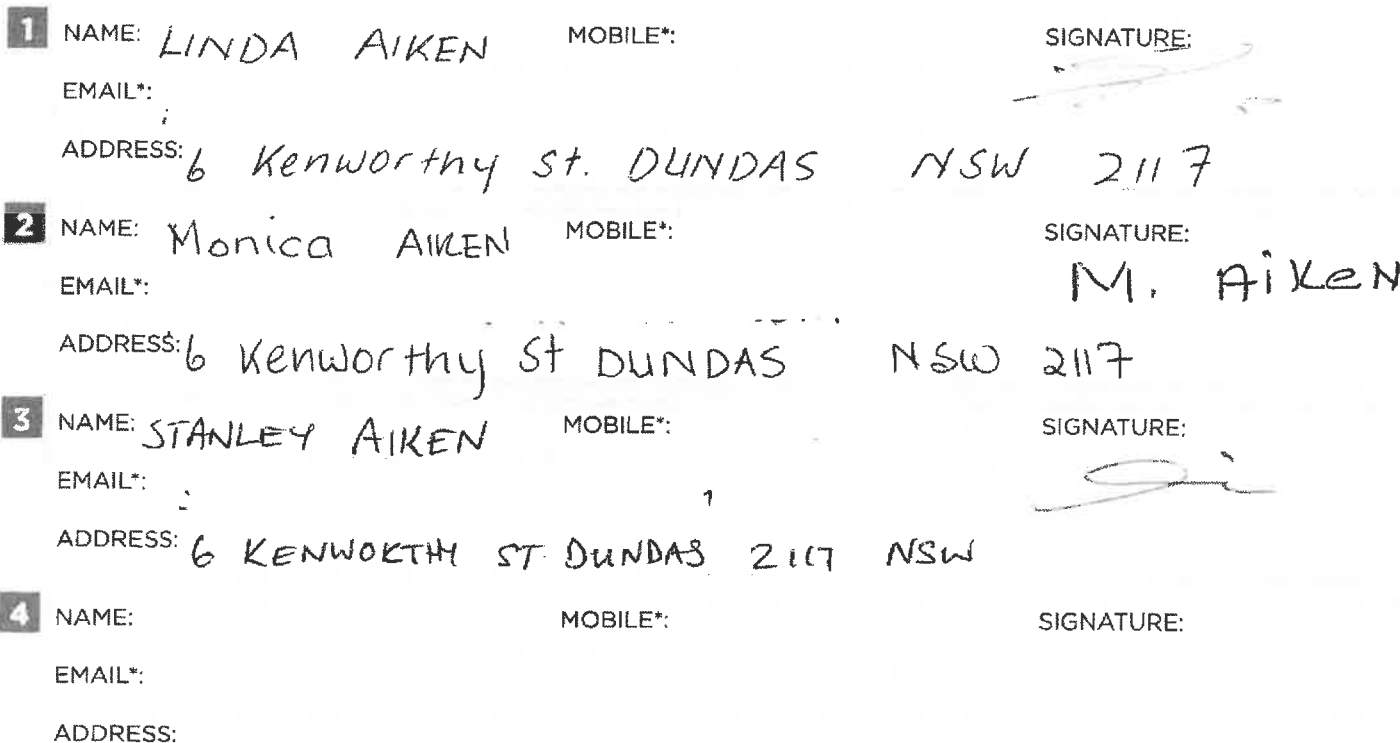 1 NAME: LINDA AIKEN MOBILE*: SIGNATURE:
EMAIL*:
ADDRESS: 6 Kenworthy St. DUNDAS NSW 2117
2 NAME: Monica AIKEN MOBILE*: SIGNATURE:
EMAIL*: M. AiKeN
ADDRESS: 6 Kenworthy St DUNDAS NSW 2117
3 NAME: STANLEY AIKEN MOBILE*: SIGNATURE:
EMAIL*:
ADDRESS: 6 KENWORTHY ST DUNDAS 2117 NSW
4 NAME: MOBILE*: SIGNATURE:
EMAIL*:
ADDRESS: